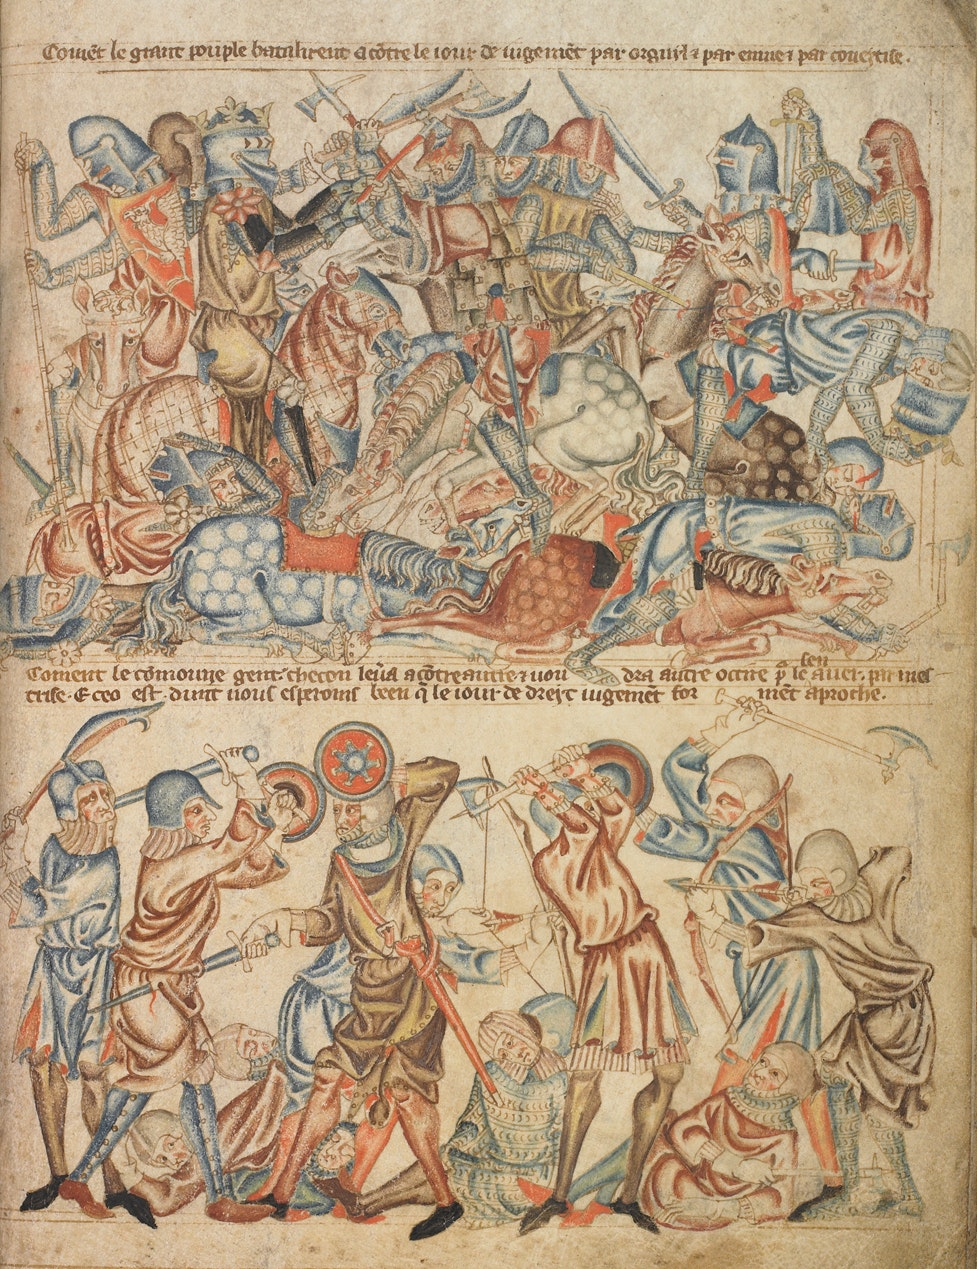 Comēt le grant pouple bataillrent acōtre le iour de iugemēt par orguyl ⁊ par enuie ⁊ par coueytise.
sen
Coment le cōmoune gent. checon leu̾a acōtre autre ⁊ uou dra autre occire p̱ le auer. par mes
trise. E ceo est. dunt nous esperoms been q̄ le iour de dreyt iugemēt for mēt aproche.